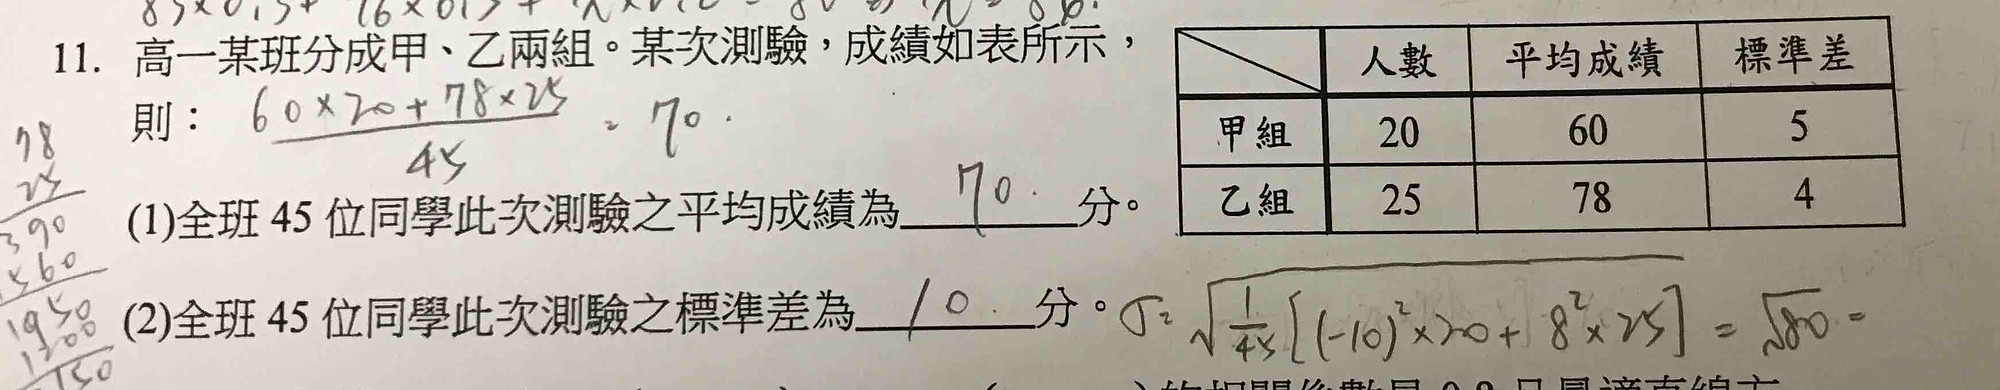 85×0.3+76×0.3+
11. 高一某班分成甲、乙兩組。某次測驗，成績如表所示，
則： (60×20+78×25)/45 = 70.
人數 平均成績 標準差
甲組 20 60 5
乙組 25 78 4
(1)全班 45 位同學此次測驗之平均成績為 70. 分。
(2)全班 45 位同學此次測驗之標準差為 10. 分。 σ=√(1/45[(-10)²×20+8²×25]) = √80 =
78
25
390
1560
1950
1200
3150